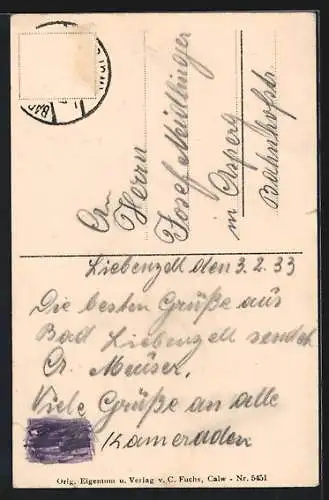 An
Herrn
Josef Meidlinger
in Asperg
Bahnhofstr.
Liebenzell den 3.2.33
Die besten Grüße aus
Bad Liebenzell sendet
Cr. Meuser.
Viele Grüße an alle
Kameraden
Orig. Eigentum u. Verlag v. C. Fuchs, Calw - Nr. 5451